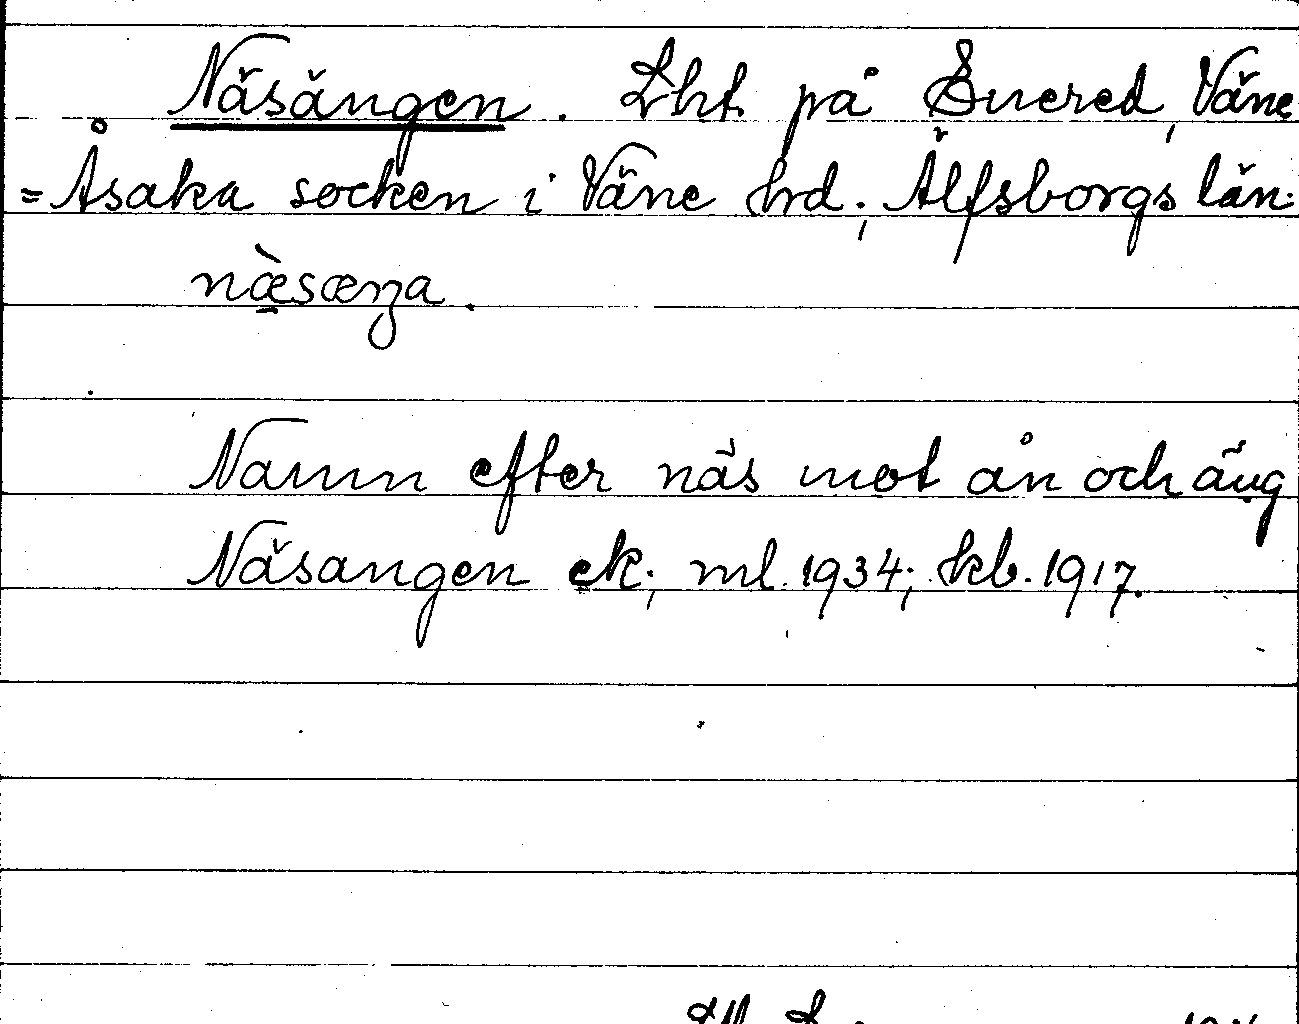 Näsängen. Lht på Suered, Väne
=Åsaka socken i Väne hrd; Älfsborgs län.
næ̀sæŋa.
Namn efter näs mot ån och äng
Näsangen ek; ml. 1934; kb. 1917.